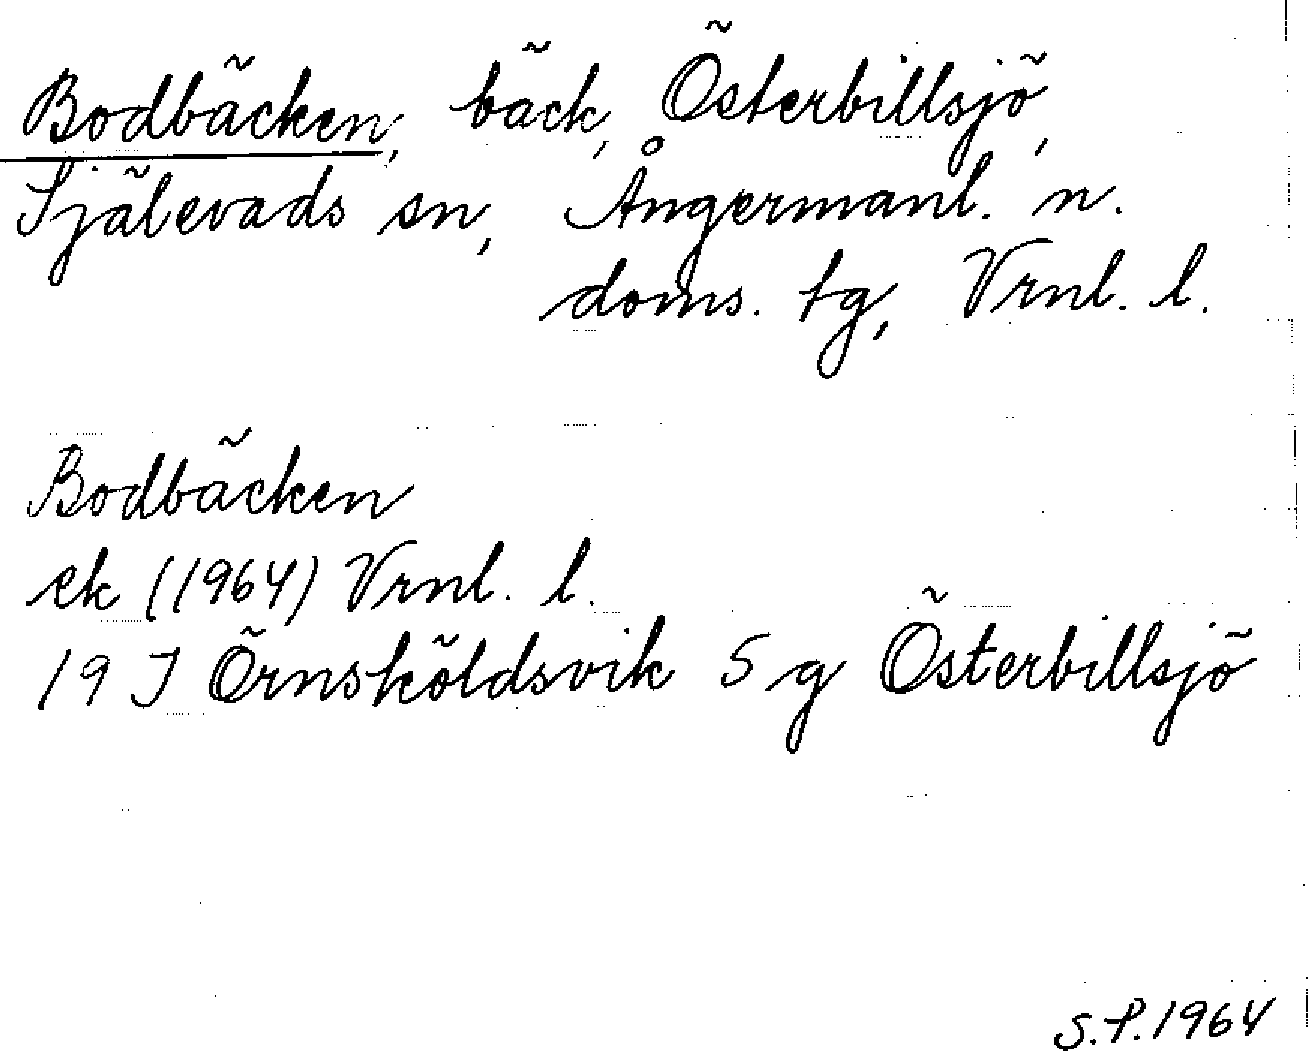 Bodbäcken, bäck, Österbillsjö,
Självevads sn, Ångermanl. n.
doms. tg, Vrnl. l.
Bodbäcken
ek (1964) Vrnl. l.
19 J Örnsköldsvik 5 g Österbillsjö
S.P. 1964